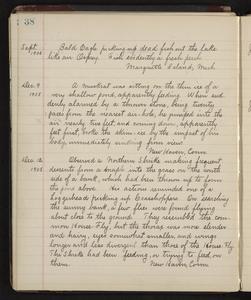 38
Sept. 1925 Bald Eagle picking up dead fish out the lake
like an Osprey. Fish evidently a fresh perch
Marquette Island, Mich
Dec. 9 1925 A muskrat was sitting on the thin ice of a
very shallow pond, apparently feeding. When suddenly
alarmed by a thrown stone, being twenty
feet from the nearest air-hole, he jumped into the
air nearly two feet and coming down, apparently
feet first, broke the skim-ice by the impact of his
body, immediately sinking from view.
New Haven, Conn
Dec. 12 1925 Observed a Northern Shrike making frequent
descents from a maple into the grass on the south
side of a bank, which had been thrown up to form
the pond above. His actions reminded one of a
loggerhead picking up Grasshoppers. On searching
the sunny bank, a few flies were found flying
about close to the ground. They resembled the common
House Fly, but the thorax was more slender
and hairy, eyes somewhat smaller, and wings
longer and less divergent than those of the House Fly.
The Shrike had been feeding, or trying to feed on
them. New Haven, Conn